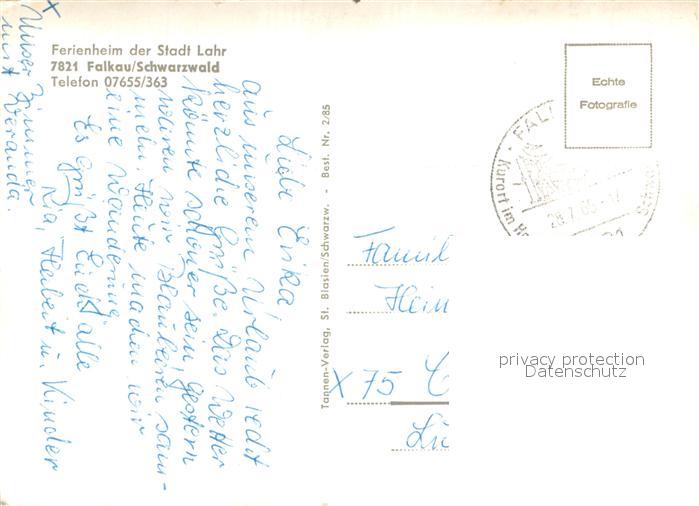 Ferienheim der Stadt Lahr
7821 Falkau/Schwarzwald
Telefon 07655/363
x
Unser Zimmer
mit Veranda.
Liebe Erika
aus unserem Urlaub recht
herzliche Grüße. Das Wetter
könnte schöner sein, gestern
waren wir Blaubeeren sam-
meln. Heute machen wir
eine Wanderung
Es grüßt Euch alle
Ria, Herbert u. Kinder
Tannen-Verlag, St. Blasien/Schwarzw. - Best. Nr. 2/85
Echte
Fotografie
FAL
Kurort im Ho
Schwa
Famil
Hein
X 75 C
privacy protection
Datenschutz